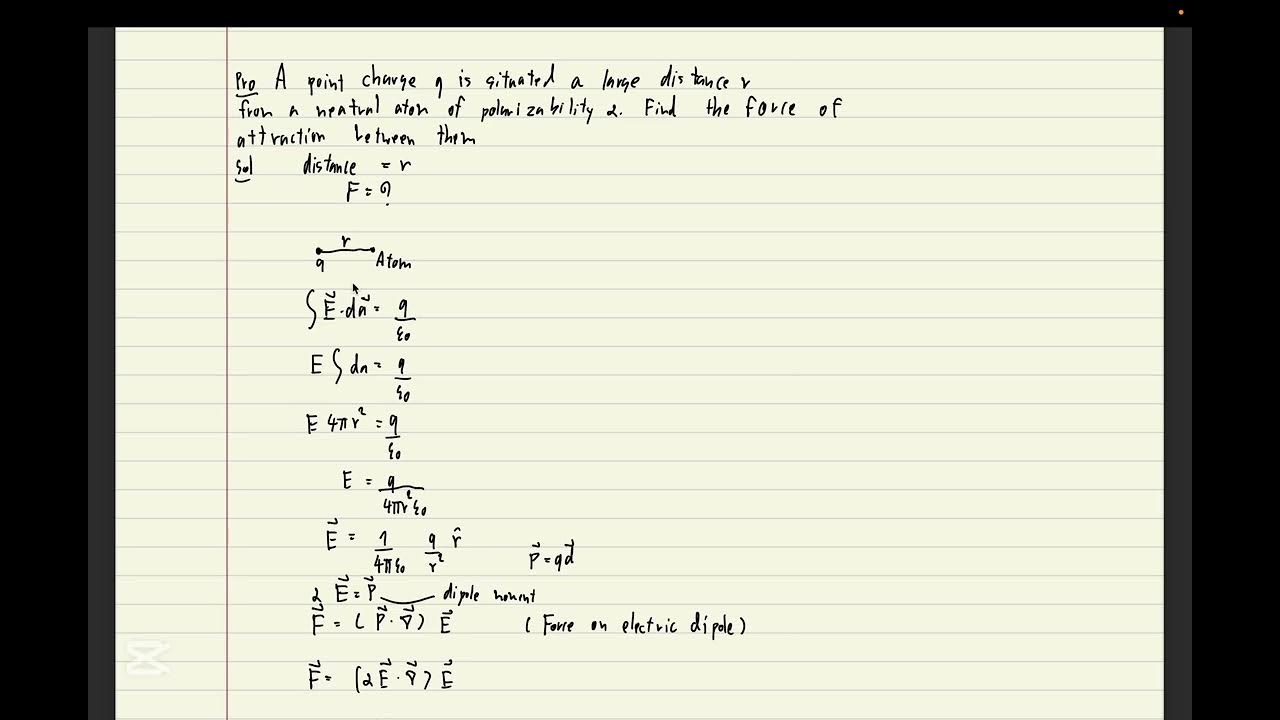 Pro A point charge q is situated a large distance r
from a neutral atom of polarizability α. Find the force of
attraction between them
Sol distance = r
F = ?
r
q Atom
∫ E⃗ · da⃗ = q/ε₀
E ∫ da = q/ε₀
E 4πr² = q/ε₀
E = q/4πr²ε₀
E⃗ = 1/4πε₀ q/r² r̂ P⃗ = qd⃗
α E⃗ = P⃗ dipole moment
F⃗ = (P⃗ · ∇⃗) E⃗ (Force on electric dipole)
F⃗ = (α E⃗ · ∇⃗) E⃗